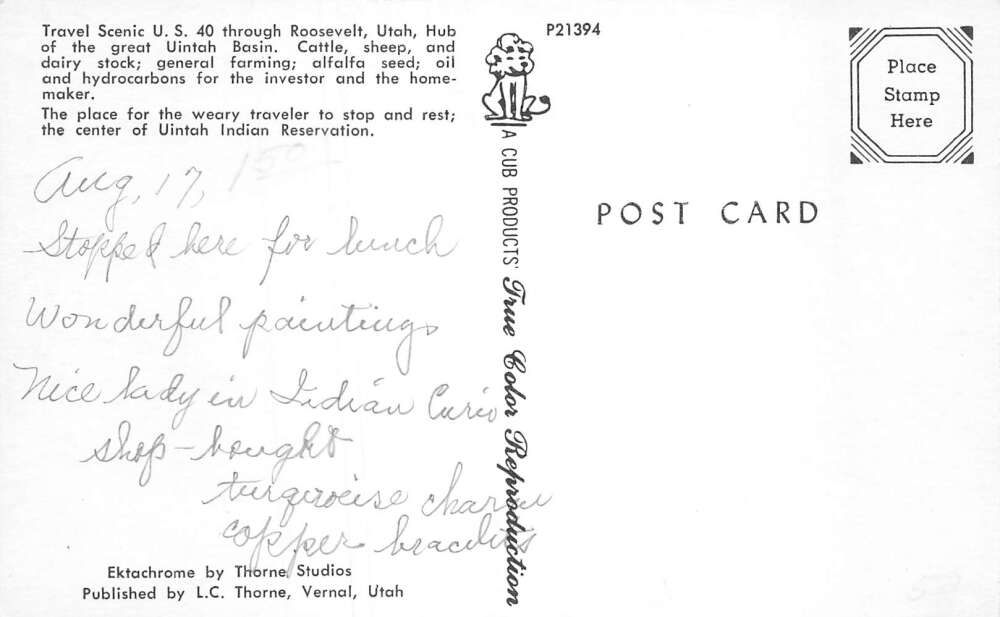 Travel Scenic U. S. 40 through Roosevelt, Utah, Hub
of the great Uintah Basin. Cattle, sheep, and
dairy stock; general farming; alfalfa seed; oil
and hydrocarbons for the investor and the home-
maker.
The place for the weary traveler to stop and rest;
the center of Uintah Indian Reservation.
Aug, 17,
Stopped here for lunch
Wonderful paintings
Nice lady in Indian Curio
shop - bought
turqroise charm
copper bracelets
Ektachrome by Thorne Studios
Published by L.C. Thorne, Vernal, Utah
P21394
A CUB PRODUCTS' True Color Reproduction
POST CARD
Place
Stamp
Here